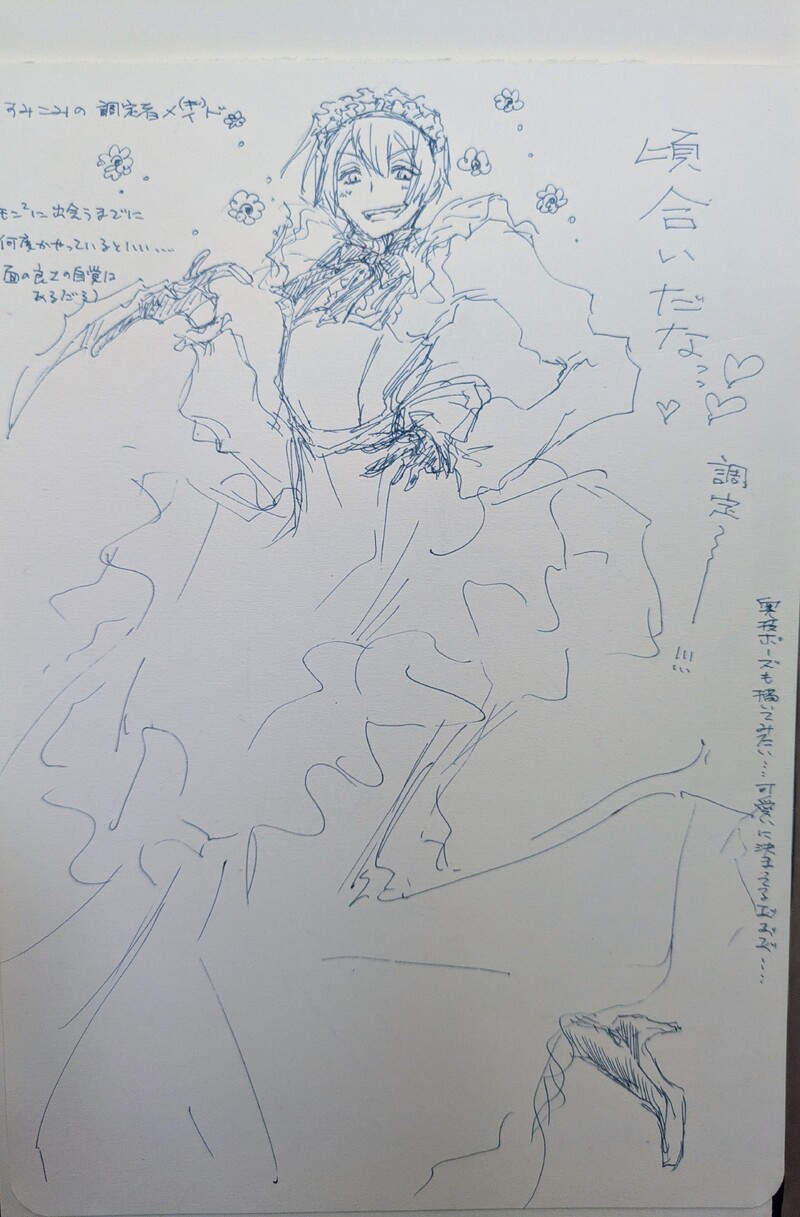 すみこみの 調定者メ(ギ)ド
モン²に出会うまでに
何度かやっているといい....
面の良さの自覚は
あるだろ)
頃合いだなっ
調定〜ー!!!
奥技ポーズも描いてみたい....可愛いに決まってる